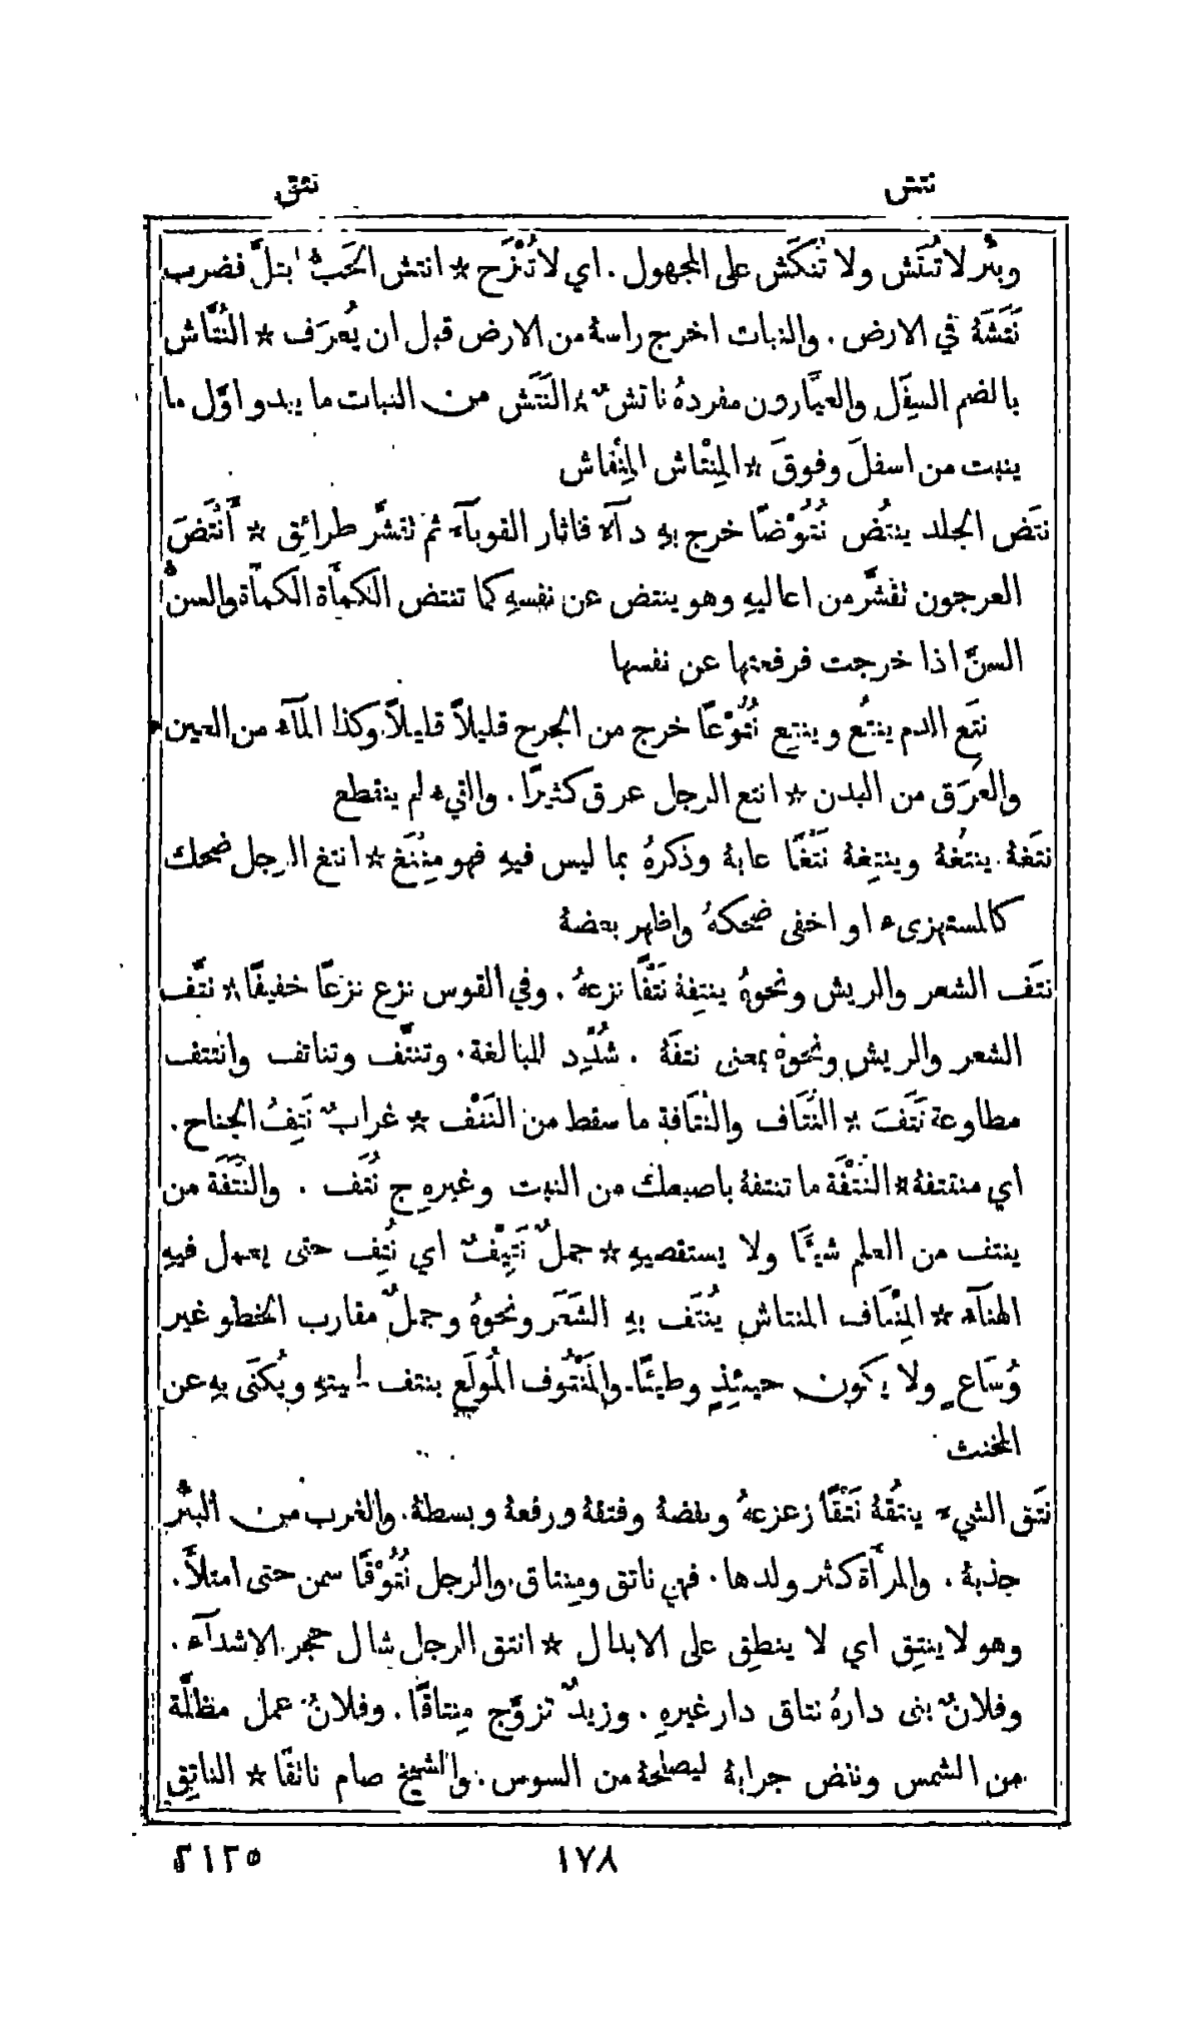 نتش
نتق
وبئر لا تُنتَش ولا تُنكَش على المجهول . اي لا تُنْزَح * انتش الحَبُّ ابتلَّ فضرب
نَتَشَهُ في الارض . والنبات اخرج راسهُ من الارض قبل ان يُعرَف * النُّتَّاش
بالضم السِفَل والعيَّارون مفردهُ ناتشٌ * النَتَش من النبات ما يبدو اوّل ما
ينبت من اسفلَ وفوقَ * المِنْتاش المِنْقاش
نتَض الجلد ينتُض نُتُوْضًا خرج بهِ دآءٌ فاثار القوبآء ثم تقشَّر طرائِق * أَنْتَضَ
العرجون تقشَّر من اعاليهِ وهو ينتض عن نفسهِ كما تنتض الكمأَة الكمأَة والسنُّ
السنَّ اذا خرجت فرفعتها عن نفسها
نتَع الدم ينتُع وينتِع نُتُوْعًا خرج من الجرح قليلاً قليلاً وكذا المآء من العين
والعَرَق من البدن * انتع الرجل عرق كثيرًا . والقيء لم ينقطع
نتَغهُ ينتُغهُ وينتِغهُ نَتْغًا عابهُ وذكرهُ بما ليس فيهِ فهو مِنْتَغ * انتغ الرجل ضحك
كالمستهزىء او اخفى ضحكهُ واظهر بعضهُ
نتَف الشعر والريش ونحوهُ ينتِفهُ نَتْفًا نزعهُ . وفي القوس نزع نزعًا خفيفًا * نتَّف
الشعر والريش ونحوهُ بمعنى نتفهُ . شُدِّد للمبالغة . وتنتَّف وتناتف وانتتف
مطاوعة نَتَفَ * النُتَاف والنُتَافة ما سقط من النَتْف * غرابٌ نَتِفُ الجناح .
اي منتتفهُ * النُتْفَة ما تنتفهُ باصبعك من النبت وغيرهِ ج نُتَف . والنُّتَفَة من
ينتف من العلم شيئًا ولا يستقصيهِ * جملٌ نَتِيْفٌ اي نُتِف حتى يعمل فيهِ
الهنآء * المِنْتَاف المنتاش يُنتَف بهِ الشَعَر ونحوهُ وجملٌ مقارب الخطو غير
وُسَاعٍ ولا يكون حينئِذٍ وطيئًا. والمَنْتُوف المُولَع بنتف لحيتهِ ويُكنَى بهِ عن
المخنث
نتَق الشيء ينتُقهُ نَتْقًا زعزعهُ ونفضهُ وفتقهُ ورفعهُ وبسطهُ. والغرب من البئْر
جذبهُ . والمرأَة كثر ولدها . فهي ناتق ومِنتاق. والرجل نُتُوْقًا سمن حتى امتلأَ .
وهو لا ينتِق اي لا ينطِق على الابدال * انتق الرجل شال حجر الاشدآء .
وفلانٌ بنى دارهُ نتاق دار غيرهِ . وزيدٌ تزوَّج مِنتاقًا . وفلانٌ عمل مظلَّة
من الشمس ونفض جرابهُ ليصلحهُ من السوس . والشيخ صام ناتقًا * الناتِق
١٧٨
٢١٢٥